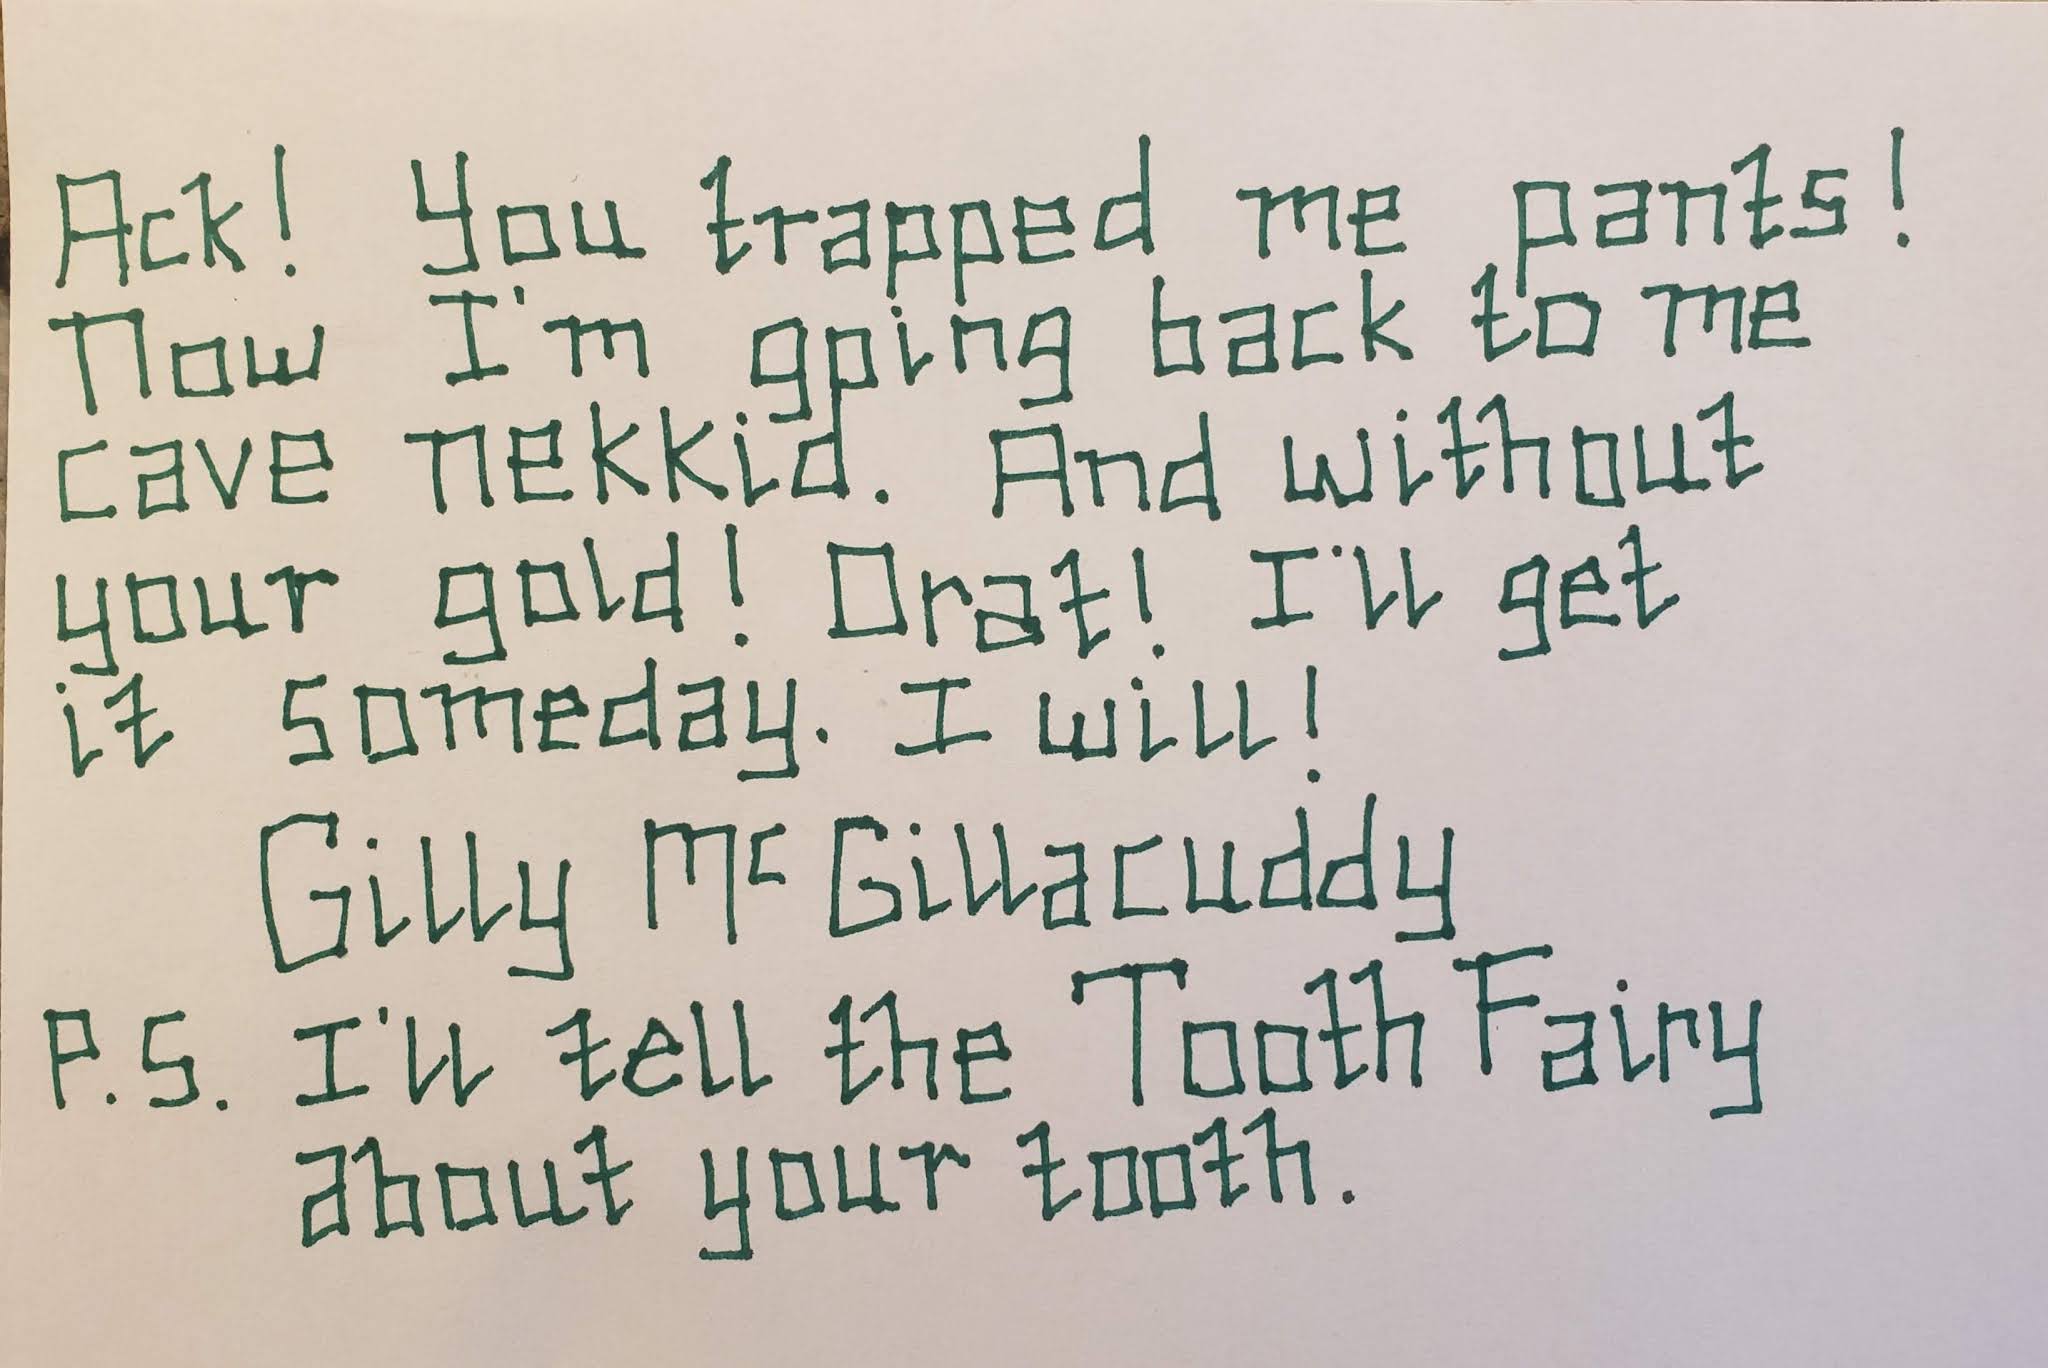 Ack! You trapped me pants!
Now I'm going back to me
cave nekkid. And without
your gold! Drat! I'll get
it someday. I will!
Gilly McGillacuddy
P.S. I'll tell the Tooth Fairy
about your tooth.